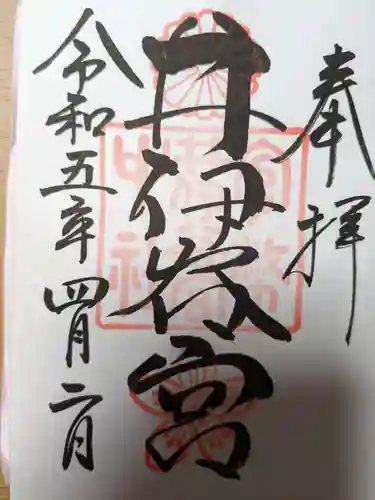 奉拝
井伊谷宮
令和五年四月二日